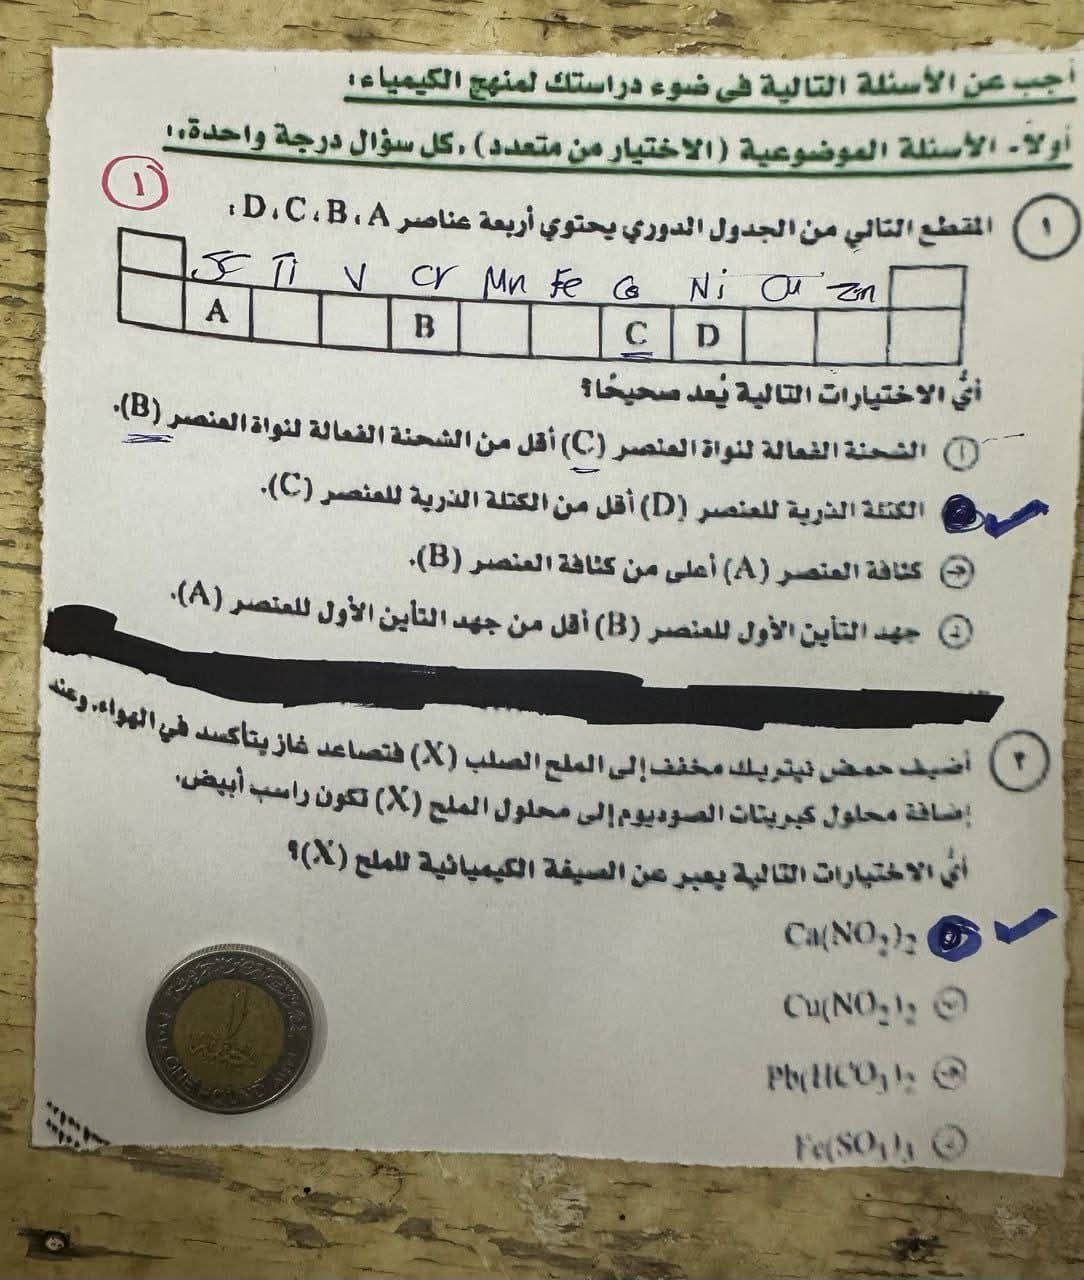 أجب عن الأسئلة التالية في ضوء دراستك لمنهج الكيمياء:
أولاً- الأسئلة الموضوعية (الاختيار من متعدد)، كل سؤال درجة واحدة،:
١
١ المقطع التالي من الجدول الدوري يحتوي أربعة عناصر D، C، B، A:
Sc Ti V Cr Mn Fe Co Ni Cu Zn
A B C D
أيُّ الاختيارات التالية يُعد صحيحًا؟
أ الشحنة الفعالة لنواة العنصر (C) أقل من الشحنة الفعالة لنواة العنصر (B).
الكتلة الذرية للعنصر (D) أقل من الكتلة الذرية للعنصر (C).
ج كثافة العنصر (A) أعلى من كثافة العنصر (B).
د جهد التأين الأول للعنصر (B) أقل من جهد التأين الأول للعنصر (A).
٢ أضيف حمض نيتريك مخفف إلى الملح الصلب (X) فتصاعد غاز يتأكسد في الهواء، وعند
إضافة محلول كبريتات الصوديوم إلى محلول الملح (X) تكون راسب أبيض،
أيُّ الاختيارات التالية يعبر عن الصيغة الكيميائية للملح (X)؟
Ca(NO₂)₂
ب Cu(NO₂)₂
ج Pb(HCO₃)₂
د
١